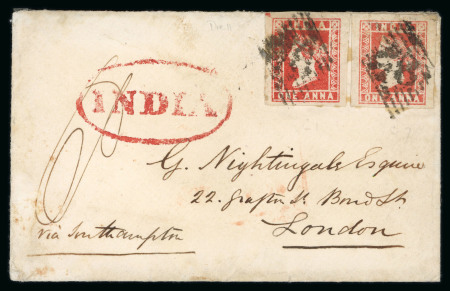 INDIA INDIA
ONE ANNA ONE ANNA
INDIA
G. Nightingale Esquire
22. Grafton St. Bond St.
London
via Southampton